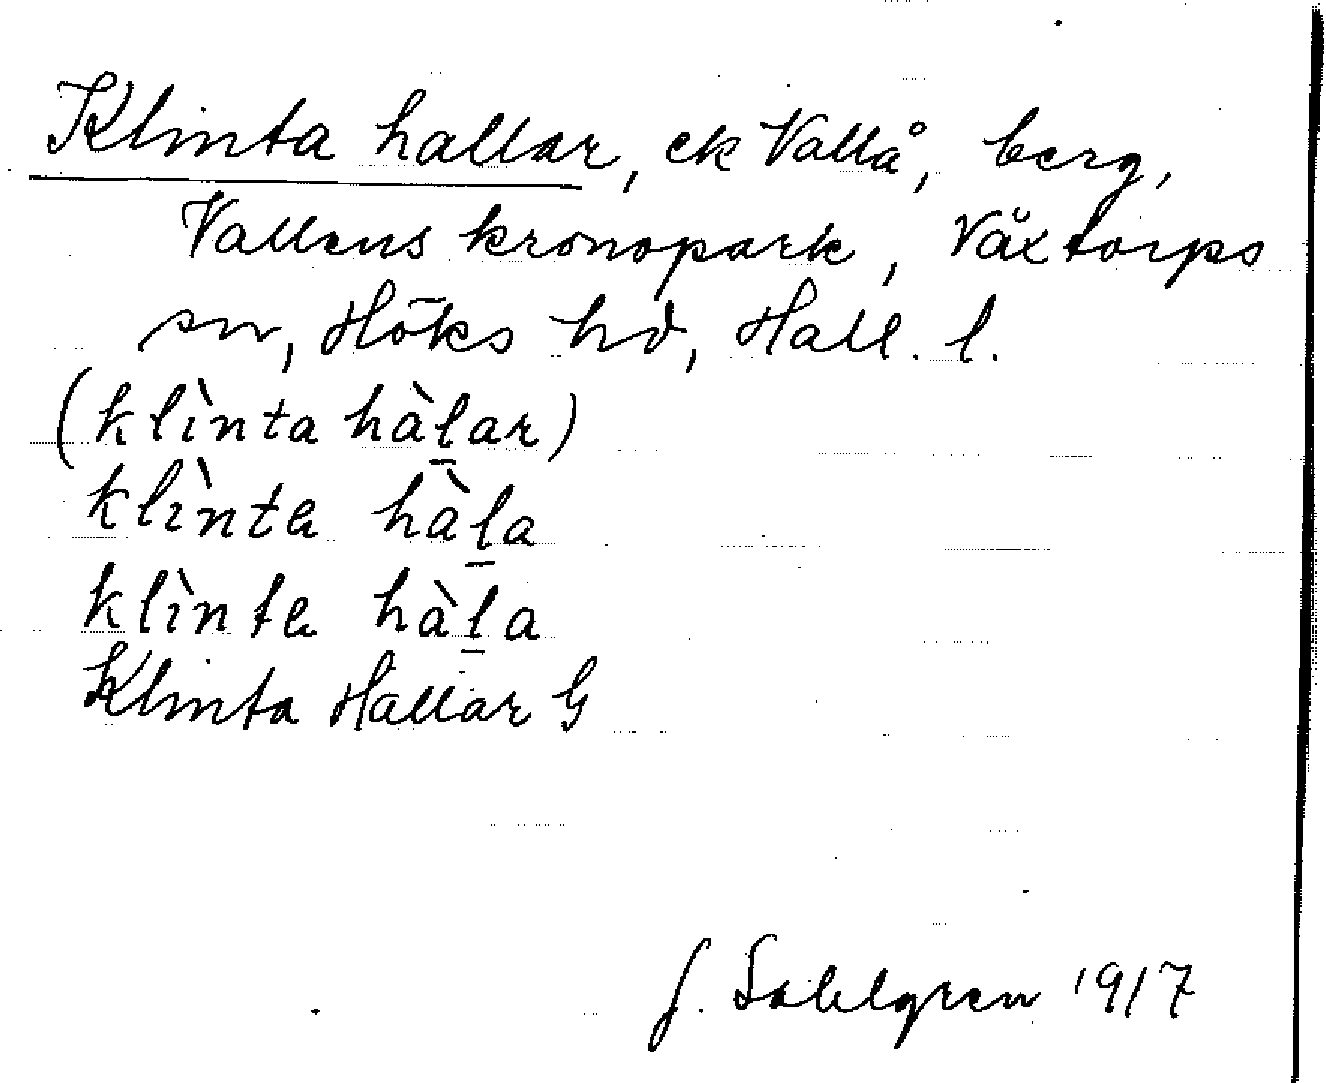 Klinta hallar, ek Vallå, berg,
Vallens kronopark, Växtorps
sn, Höks hd, Hall. l.
(klìnta hàl̲ar)
klìnta hàl̲a
klìnta hàl̲a
Klinta Hallar G
J. Sahlgren 1917